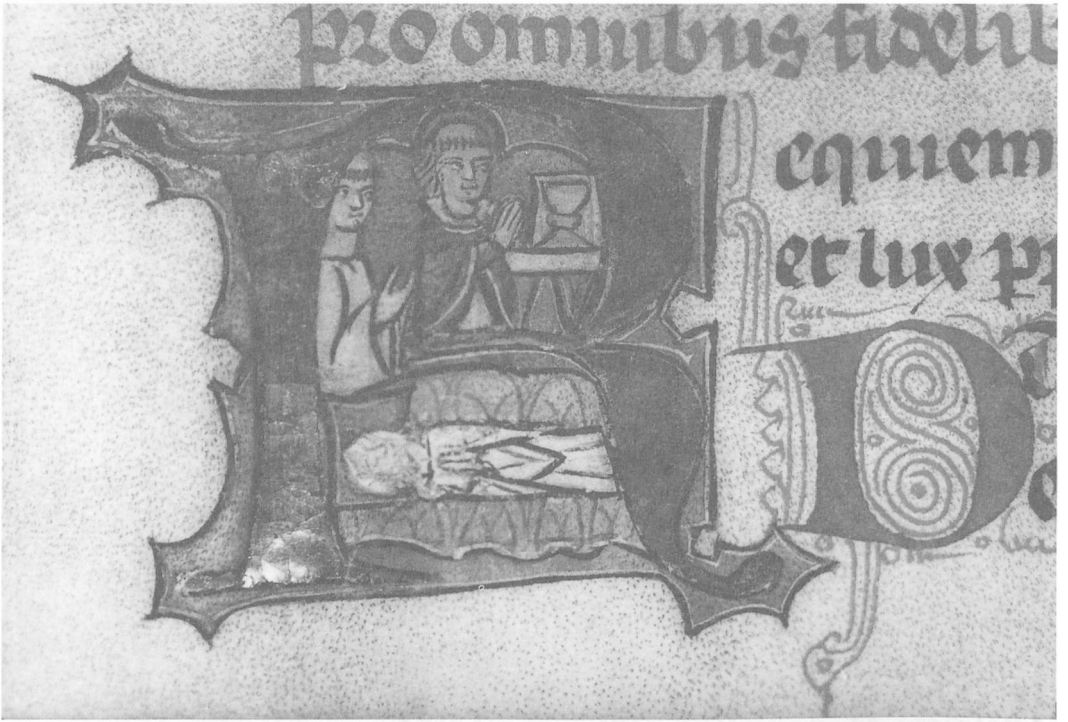 pro omnibus fidelib
R equiem
et lux pr
D